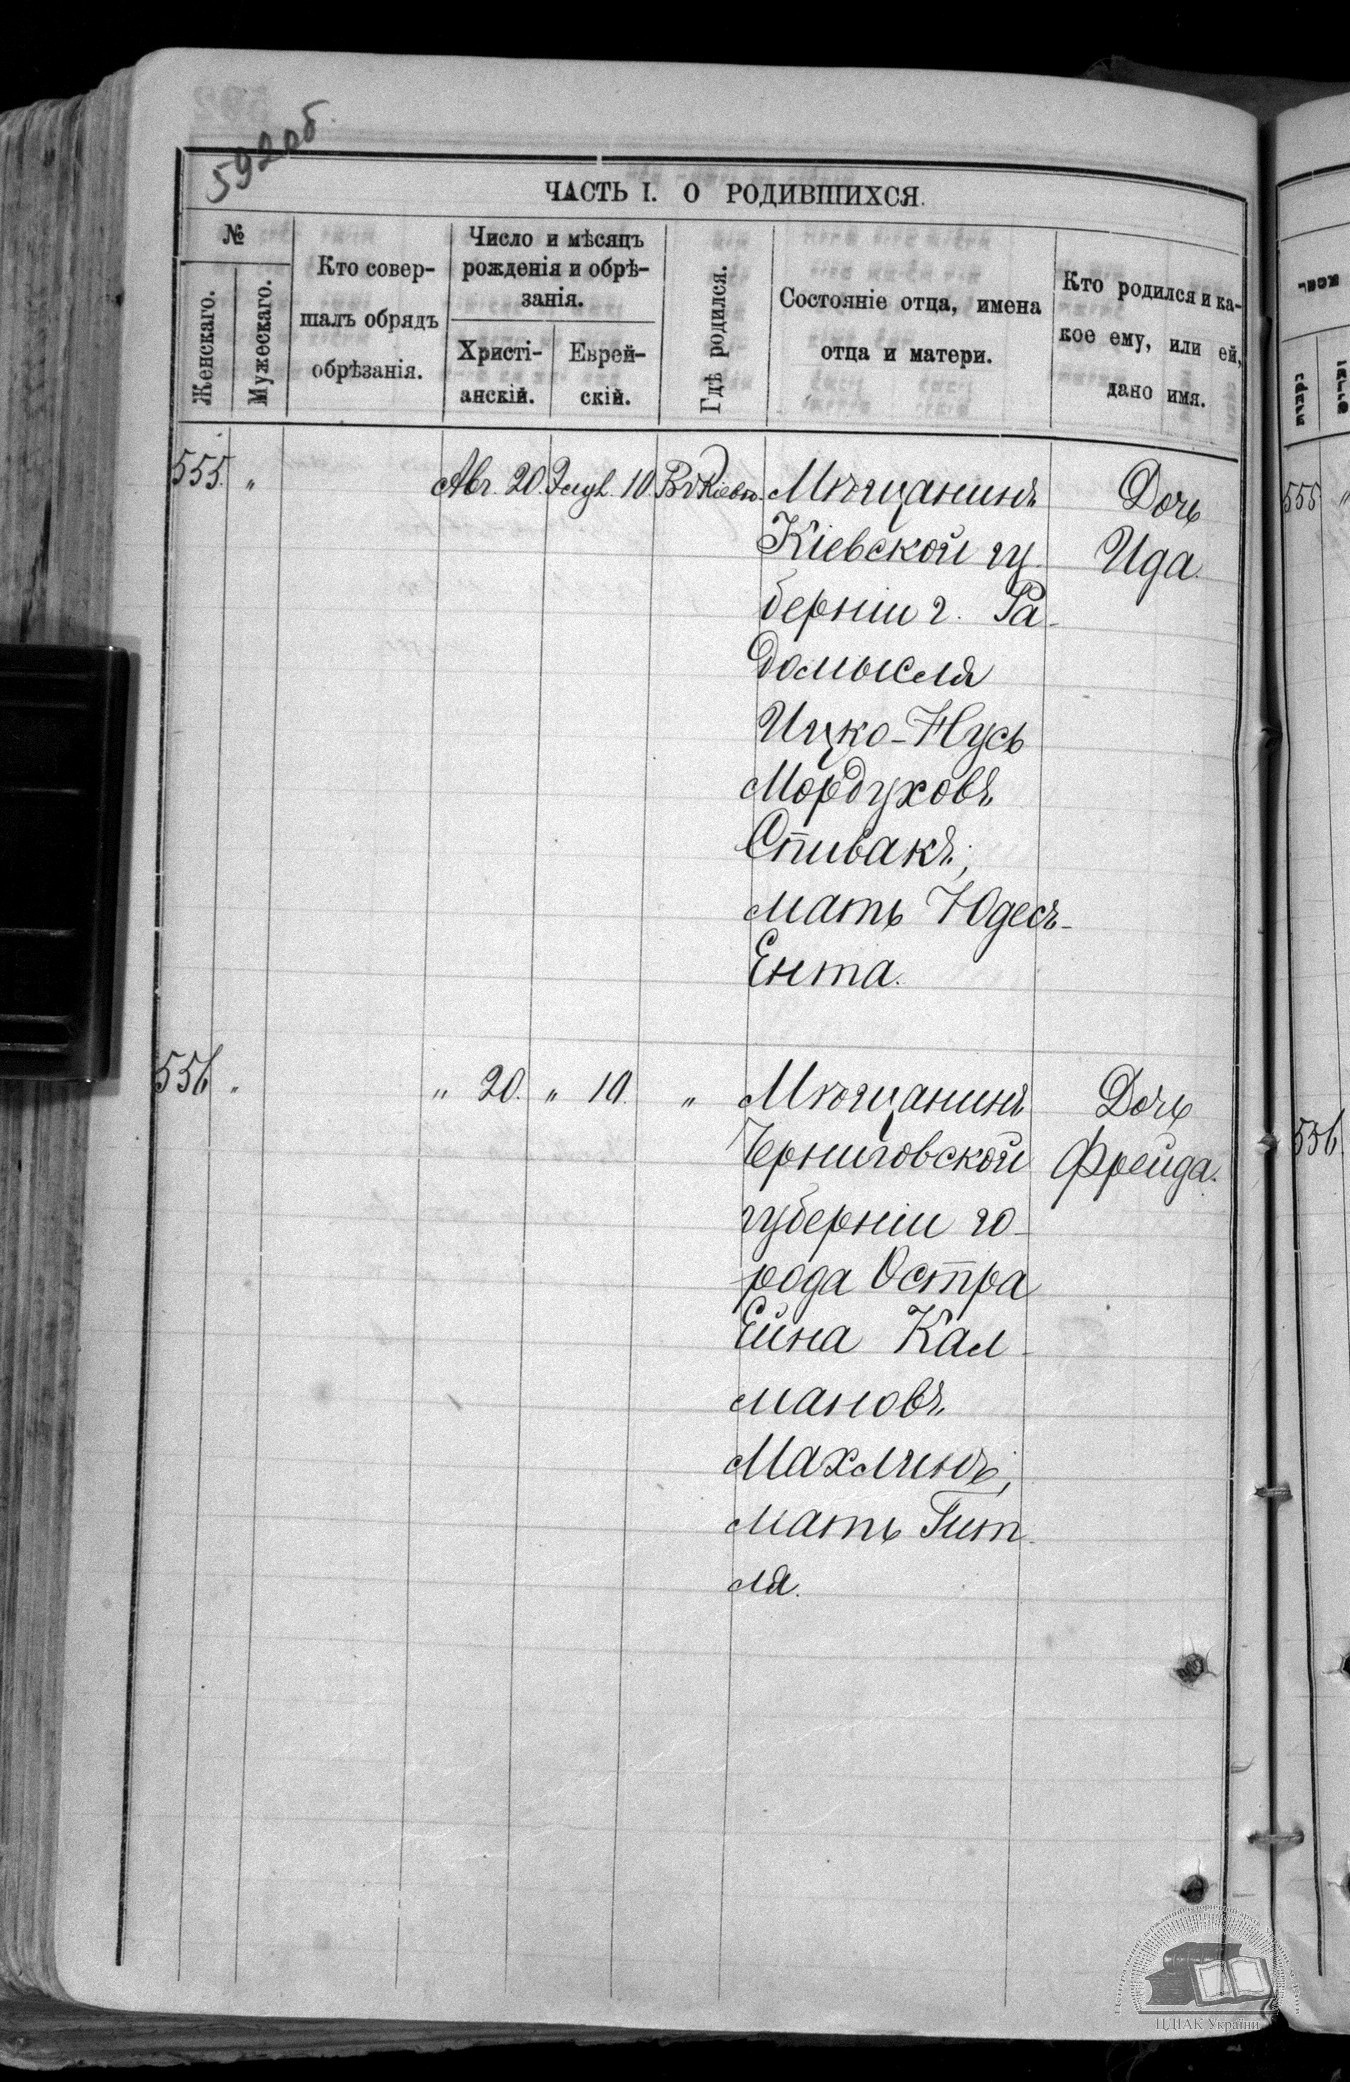 592 об.
ЧАСТЬ I. О РОДИВШИХСЯ.
№
Женскаго.
Мужескаго.
Кто совер-
шалъ обрядъ
обрѣзанія.
Число и мѣсяцъ
рожденія и обрѣ-
занія.
Христі-
анскій.
Еврей-
скій.
Гдѣ родился.
Состояніе отца, имена
отца и матери.
Кто родился и ка-
кое ему, или ей,
дано имя.
555. " Авг. 20. 10. Въ Кіевѣ. Мѣщанинъ Дочь
Кіевской гу- Ида.
берніи г. Ра-
домысля
Ицко-Нусь
Мордуховъ
Спивакъ,
мать Юдесъ-
Ента.
556 " " 20. " 10. " Мѣщанинъ Дочь
Черниговской Фрейда.
губерніи го-
рода Остра
Ейна Кал-
мановъ
Махлинъ,
мать Гит-
ля.
555 "
556
ЦДІАК України